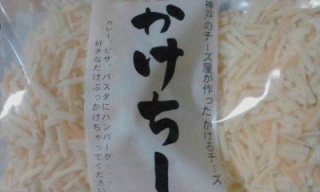 神戸のチーズ屋が作ったかけるチーズ
かけちー
カレー、ピザ、パスタにハンバーグ・・
好きなだけぶっかけちゃってください